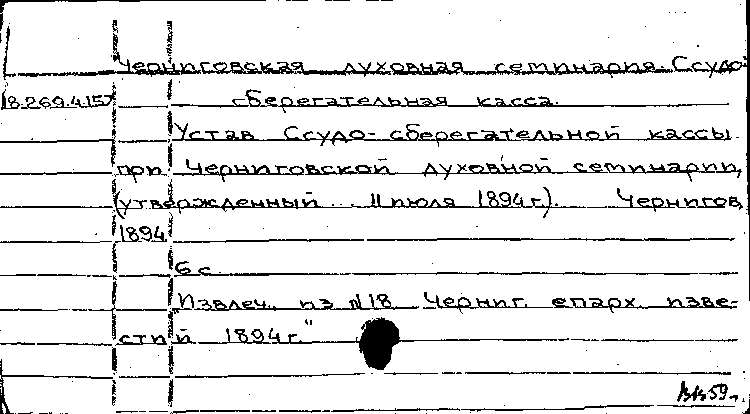 Черниговская духовная семинария. Ссудо-
18.269.4.157 сберегательная касса.
Устав Ссудо-сберегательной кассы
при Черниговской духовной семинарии,
(утвержденный ... 11 июля 1894 г.). Чернигов,
1894
6 с.
Извлеч. из №18 Черниг. епарх. изве-
стий 1894 г."